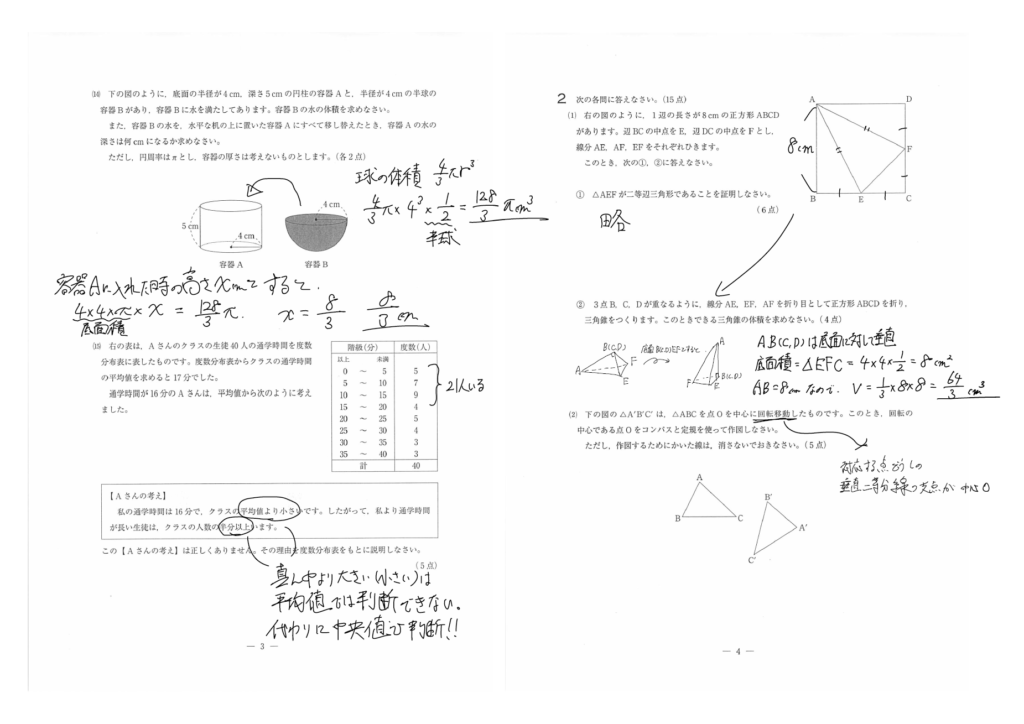 ⒁ 下の図のように,底面の半径が4cm,深さ5cmの円柱の容器Aと,半径が4cmの半球の
容器Bがあり,容器Bに水を満たしてあります。容器Bの水の体積を求めなさい。
また,容器Bの水を,水平な机の上に置いた容器Aにすべて移し替えたとき,容器Aの水の
深さは何cmになるか求めなさい。
ただし,円周率はπとし,容器の厚さは考えないものとします。(各2点)
球の体積 4/3 πr³
4/3 π × 4³ × 1/2 = 128/3 π cm³
半球
5 cm
4 cm
4 cm
容器A
容器B
容器Aに入れた時の高さxcmとすると、
4×4×π × x = 128/3 π.
x = 8/3
8/3 cm
底面積
⒂ 右の表は,Aさんのクラスの生徒40人の通学時間を度数
分布表に表したものです。度数分布表からクラスの通学時間
の平均値を求めると17分でした。
通学時間が16分のAさんは,平均値から次のように考え
ました。
階級(分) 度数(人)
以上 未満
0 ~ 5 5
5 ~ 10 7
10 ~ 15 9
15 ~ 20 4
20 ~ 25 5
25 ~ 30 4
30 ~ 35 3
35 ~ 40 3
計 40
21人いる
【Aさんの考え】
私の通学時間は16分で,クラスの平均値より小さいです。したがって,私より通学時間
が長い生徒は,クラスの人数の半分以上います。
この【Aさんの考え】は正しくありません。その理由を度数分布表をもとに説明しなさい。
(5点)
真ん中より大きい(小さい)は
平均値では判断できない。
代わりに中央値で判断!!
― 3 ―
2 次の各問に答えなさい。(15点)
⑴ 右の図のように,1辺の長さが8cmの正方形ABCD
があります。辺BCの中点をE,辺DCの中点をFとし,
線分AE,AF,EFをそれぞれひきます。
このとき,次の①,②に答えなさい。
① △AEFが二等辺三角形であることを証明しなさい。
(6点)
略
A
D
8cm
F
B
E
C
② 3点B,C,Dが重なるように,線分AE,EF,AFを折り目として正方形ABCDを折り,
三角錐をつくります。このときできる三角錐の体積を求めなさい。(4点)
B(C,D)
A
F
E
A
B(C,D)
F
E
AB(C,D)は底面に対して垂直
底面積 = △EFC = 4×4×1/2 = 8cm²
AB=8cmなので、V = 1/3×8×8 = 64/3 cm³
⑵ 下の図の△A′B′C′は,△ABCを点Oを中心に回転移動したものです。このとき,回転の
中心である点Oをコンパスと定規を使って作図しなさい。
ただし,作図するためにかいた線は,消さないでおきなさい。(5点)
対応する点どうしの
垂直二等分線の交点が中心O
A
B
C
B′
A′
C′
― 4 ―